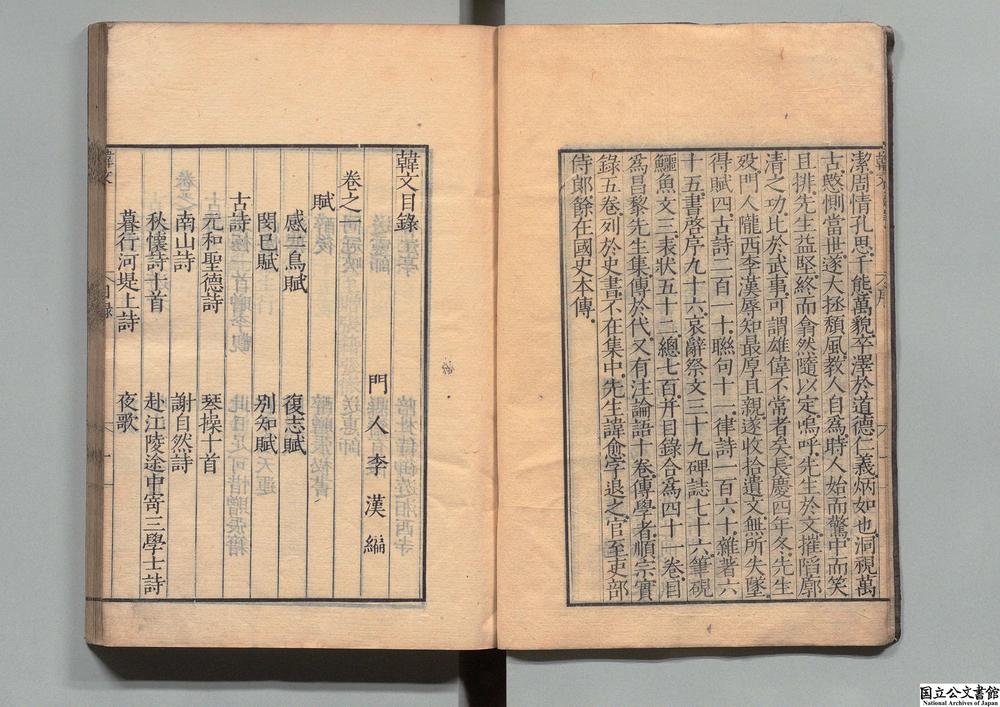 潔周情孔思千態萬貌卒澤於道德仁義炳如也洞視萬
古愍惻當世遂大拯頹風教人自爲時人始而驚中而笑
且排先生益堅終而翕然隨以定嗚呼先生於文摧陷廓
清之功比於武事可謂雄偉不常者矣長慶四年冬先生
歿門人隴西李漢辱知最厚且親遂收拾遺文無所失墜
得賦四古詩二百一十聯句十一律詩一百六十雜著六
十五書啓序九十六哀辭祭文三十九碑誌七十六筆硯
鱷魚文三表狀五十二總七百并目錄合爲四十一卷目
爲昌黎先生集傳於代又有注論語十卷傳學者順宗實
錄五卷列於史書不在集中先生諱愈字退之官至吏部
侍郎餘在國史本傳
韓文 序
韓文目錄
門人李漢編
卷之一
賦
感二鳥賦 復志賦
閔己賦 別知賦
古詩
元和聖德詩 琴操十首
南山詩 謝自然詩
秋懷詩十首 赴江陵途中寄三學士詩
暮行河堤上詩 夜歌
韓文 目錄 一
国立公文書館
National Archives of Japan